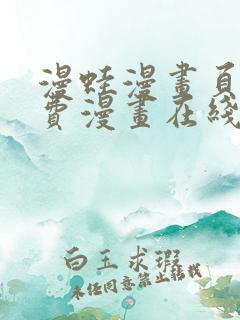 漫蛙漫畫頁
費漫畫在綫
白玉求瑕
未经同意禁止转载